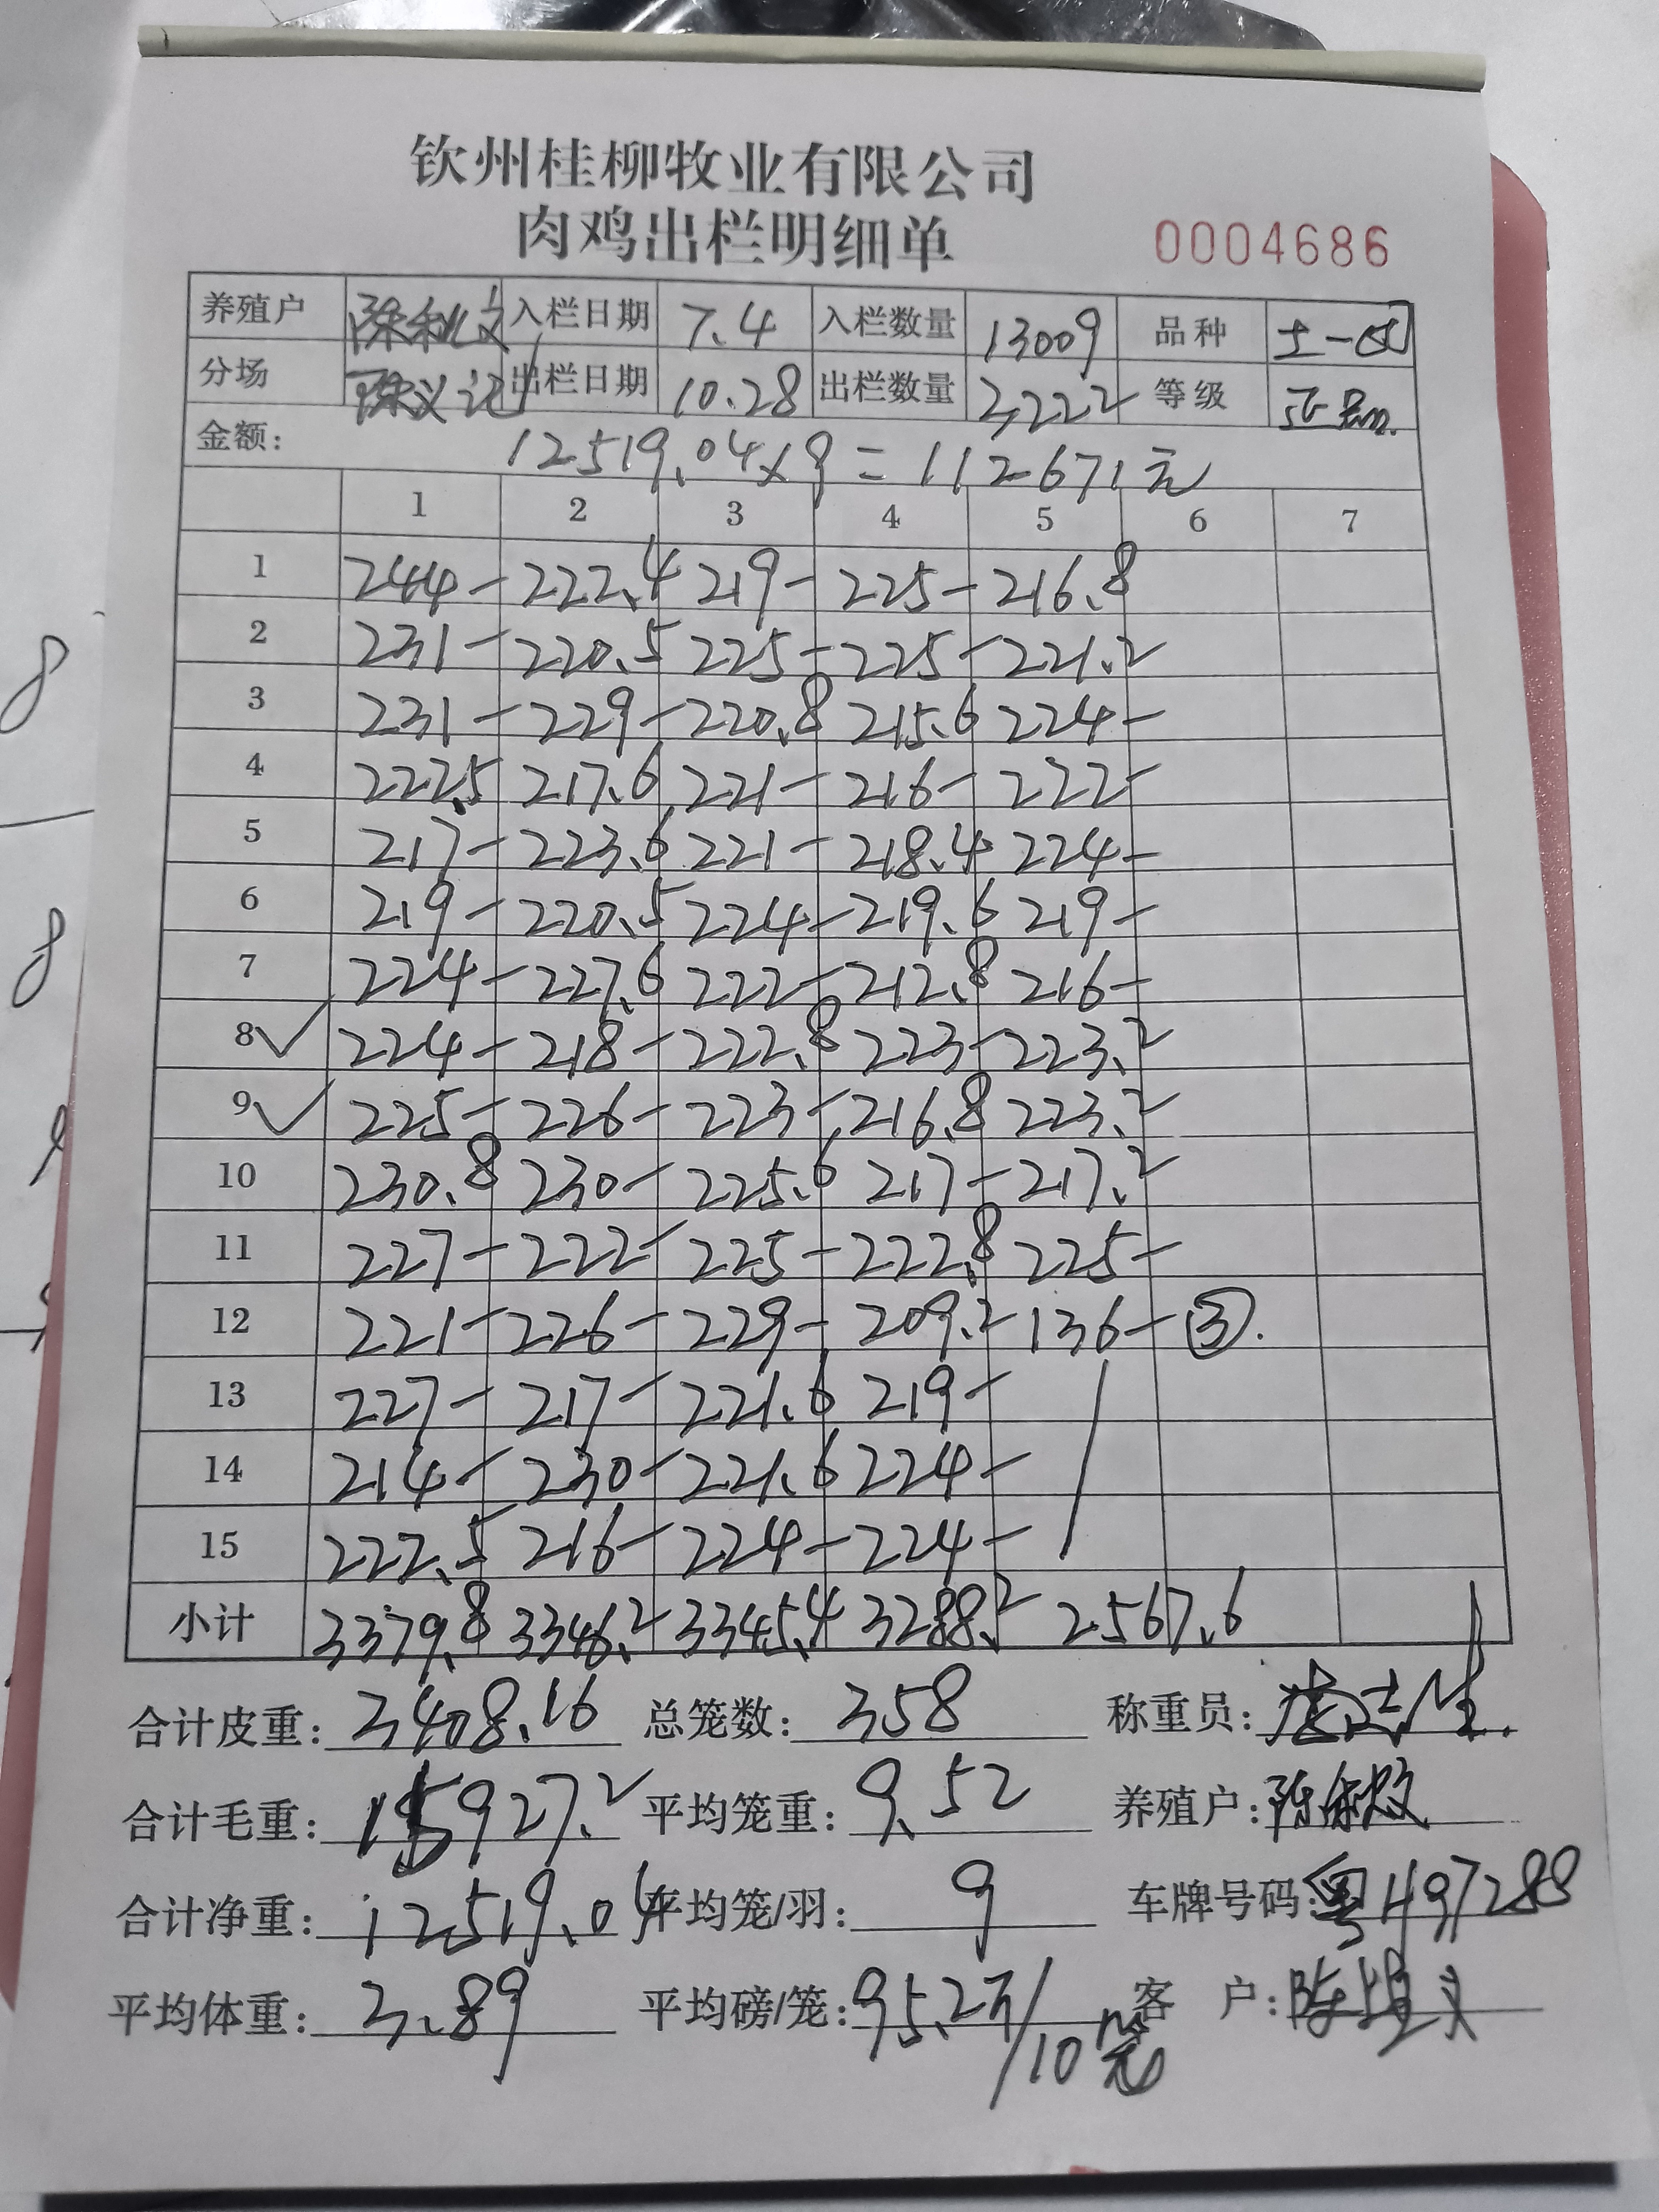 钦州桂柳牧业有限公司
肉鸡出栏明细单 0004686
养殖户 入栏日期 7.4 入栏数量 13009 品种 土一
分场 陈义记 出栏日期 10.28 出栏数量 3,222 等级 正品
金额: 12519.04×9=112671元
1 2 3 4 5 6 7
1 244- 222.4 219- 225- 216.8
2 231- 220.5 225- 225- 221.2
3 231- 229- 220.8 215.6 224-
4 222.5 217.6 221- 216- 222-
5 217- 223.6 221- 218.4 224-
6 219- 220.5 224- 219.6 219-
7 224- 227.6 222- 212.8 216-
8✓ 224- 218- 222.8 223- 223.2
9✓ 225- 226- 223- 216.8 223.2
10 230.8 230- 225.6 217- 217.2
11 227- 222- 225- 222.8 225-
12 221- 226- 229- 209.2 136- ③.
13 227- 217- 221.6 219-
14 214- 230- 221.6 224-
15 222.5 216- 224- 224-
小计 3379.8 3346.2 3345.4 3288.2 2567.6
合计皮重: 3408.16 总笼数: 358 称重员:
合计毛重: 15927.2 平均笼重: 9.52 养殖户:
合计净重: 12519.04 平均笼/羽: 9 车牌号码: 粤H97288
平均体重: 3.89 平均磅/笼: 95.2斤/10笼 客 户: